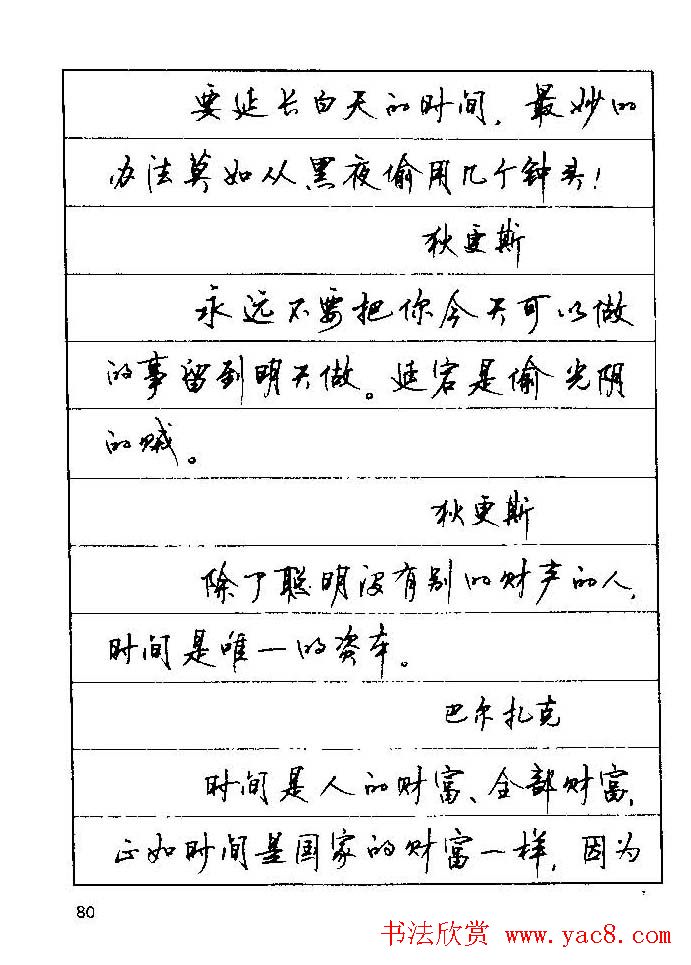 要延长白天的时间，最妙的
办法莫如从黑夜偷用几个钟头！
狄更斯
永远不要把你今天可以做
的事留到明天做。延宕是偷光阴
的贼。
狄更斯
除了聪明没有别的财产的人，
时间是唯一的资本。
巴尔扎克
时间是人的财富、全部财富，
正如时间是国家的财富一样，因为
80
书法欣赏 www.yac8.com